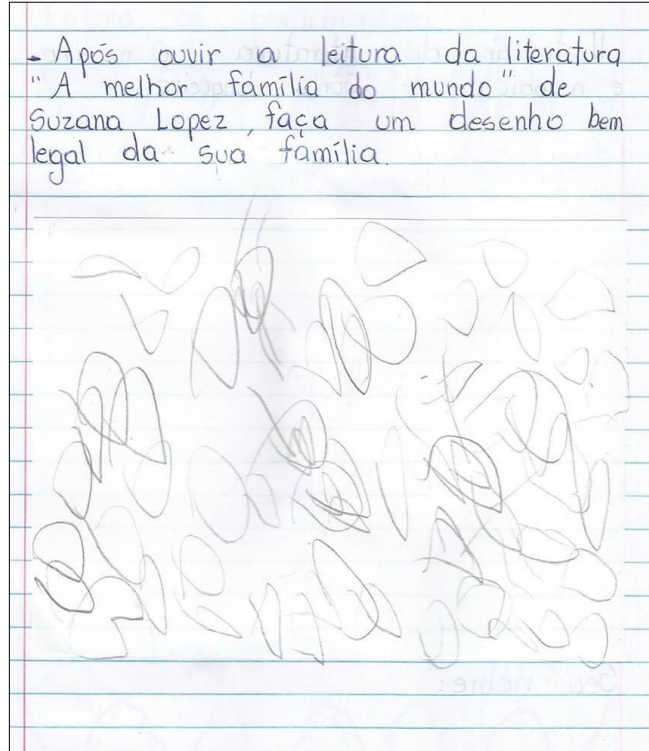 - Após ouvir a leitura da literatura
"A melhor família do mundo" de
Suzana Lopez, faça um desenho bem
legal da sua família.
Seu nome: